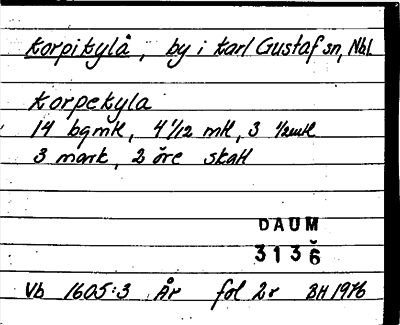 Korpikylå, by i Karl Gustaf sn, Nbl.
Korpekyla
14 bgmk, 4 1/12 mk, 3 1/2mk
3 mark, 2 öre skatt
DAUM
3136
Vb 1605:3 År fol 2r BH 1976